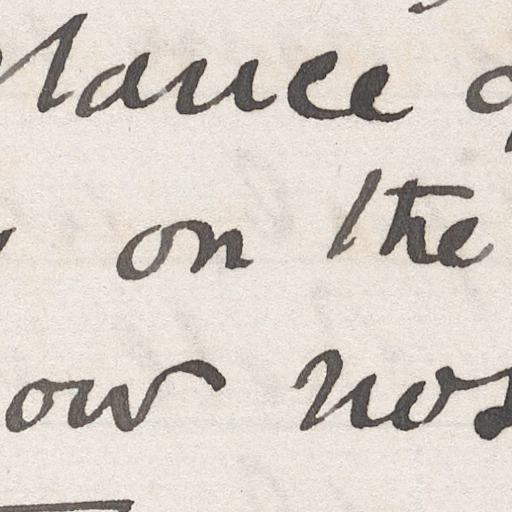 lance o
on the
ow nos